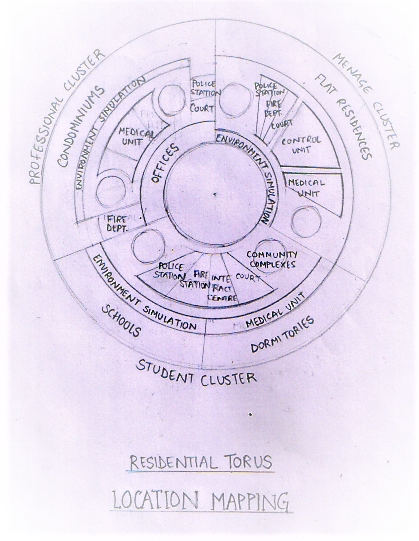 PROFESSIONAL CLUSTER
CONDOMINIUMS
ENVIRONMENT SIMULATION
POLICE
STATION
COURT
MEDICAL
UNIT
OFFICES
FIRE
DEPT.
MENAGE CLUSTER
FLAT RESIDENCES
POLICE
STATION
FIRE
DEPT.
COURT
CONTROL
UNIT
ENVIRONMENT SIMULATION
MEDICAL
UNIT
COMMUNITY
COMPLEXES
POLICE
STATION
FIRE
STATION
INTE
RACT
CENTRE
COURT
ENVIRONMENT SIMULATION
MEDICAL UNIT
SCHOOLS
DORMITORIES
STUDENT CLUSTER
RESIDENTIAL TORUS
LOCATION MAPPING